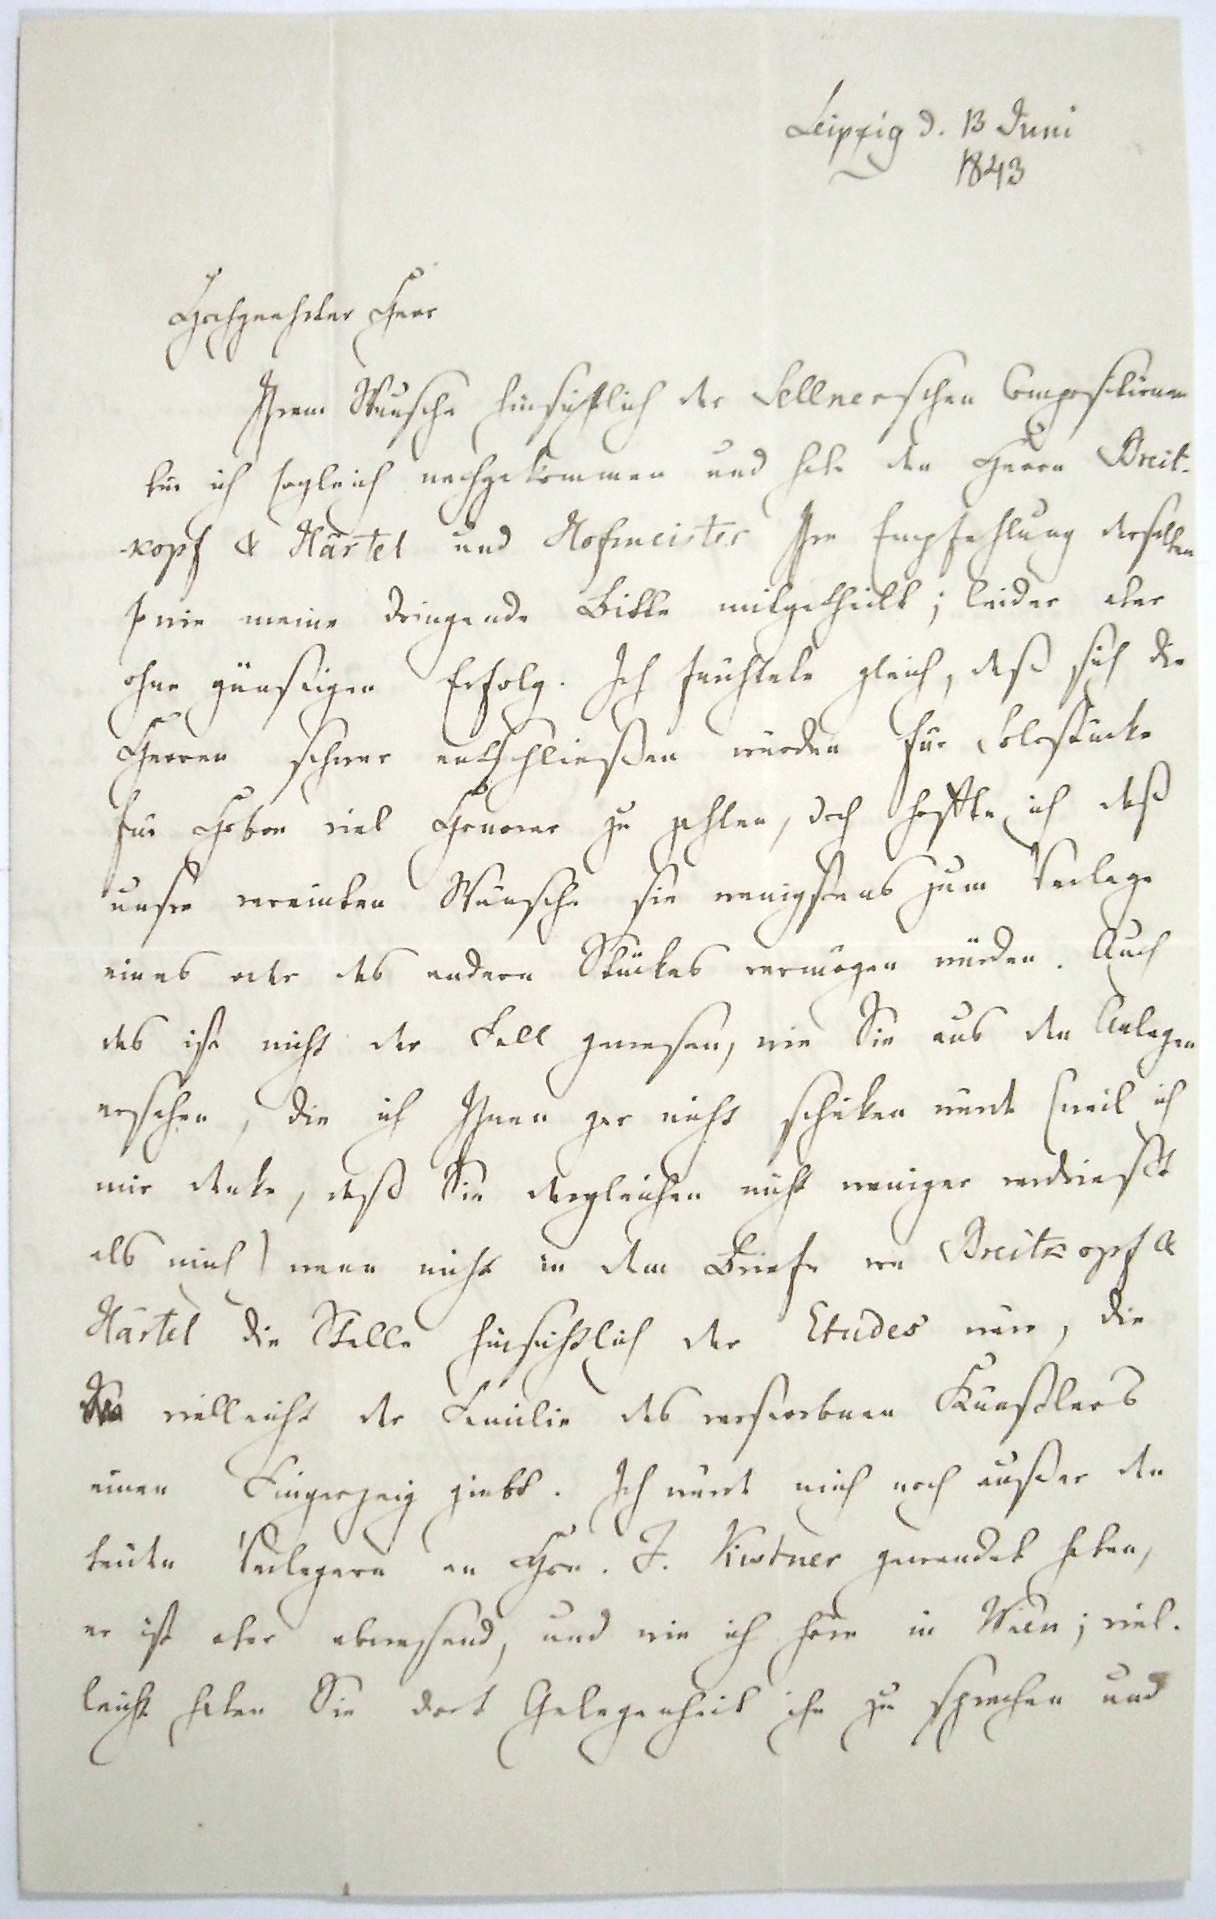 Leipzig d. 13 Juni
1843
Hochgeehrter Herr
Ihrem Wunsche hinsichtlich der Sellnerschen Compositionen
bin ich sogleich nachgekommen und habe den Herren Breit-
-kopf & Härtel und Hofmeister Ihre Empfehlung derselben
sowie meine dringende Bitte mitgetheilt; leider aber
ohne günstigen Erfolg. Ich fürchtete gleich, daß sich die
Herren schwer entschließen würden für Solostücke
für Hoboe viel Honorar zu zahlen, doch hoffte ich daß
unsre vereinten Wünsche sie wenigstens zum Verlage
eines oder des andern Stückes vermögen würden. Auch
das ist nicht der Fall gewesen, wie Sie aus den Anlagen
ersehen, die ich Ihnen gar nicht schicken würde (weil ich
mir denke, daß Sie dergleichen nicht weniger verdrießt
als mich) wenn nicht in dem Briefe von Breitkopf &
Härtel die Stelle hinsichtlich der Etudes wäre, die
vielleicht der Familie des verstorbenen Künstlers
einen Fingerzeig giebt. Ich würde mich noch außer den
beiden Verlegern an Hrn. F. Kistner gewendet haben,
er ist aber abwesend, und wie ich höre in Wien; viel-
leicht haben Sie dort Gelegenheit ihn zu sprechen und